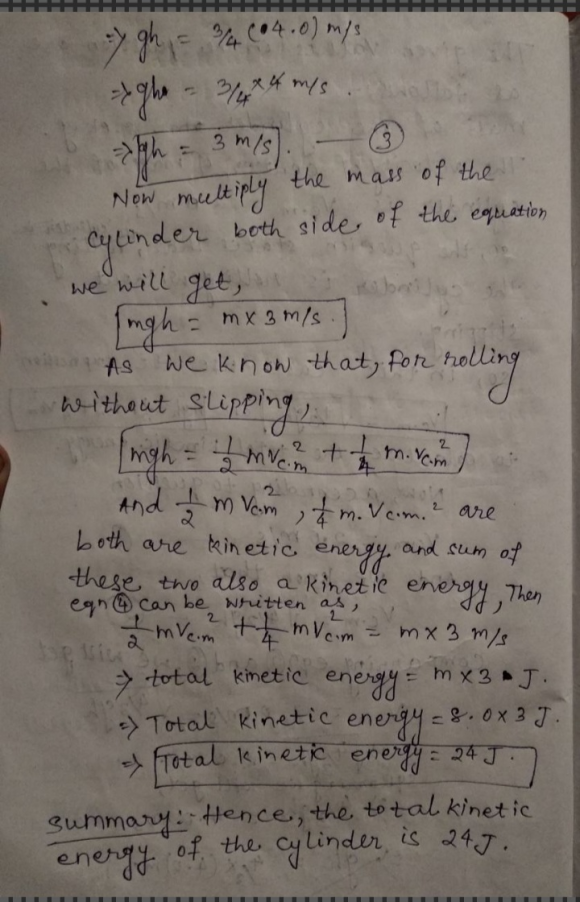 ⇒ gh = 3/4 (04.0) m/s
⇒ gh = 3/4 × 4 m/s .
⇒ gh = 3 m/s . — ③
Now multiply the mass of the
cylinder both side of the equation
we will get,
mgh = m x 3 m/s .
As we know that, for rolling
without slipping,
mgh = 1/2 mv²c.m + 1/4 m.v²c.m
And 1/2 m V²c.m , 1/4 m.Vc.m.² are
both are kinetic energy and sum of
these two also a kinetic energy, Then
eqn ④ can be written as,
1/2 mV²c.m + 1/4 mV²c.m = m x 3 m/s
⇒ total kinetic energy = m x 3 J.
⇒ Total kinetic energy = 8.0 x 3 J.
⇒ Total kinetic energy = 24 J .
Summary:- Hence, the total kinetic
energy of the cylinder is 24 J.